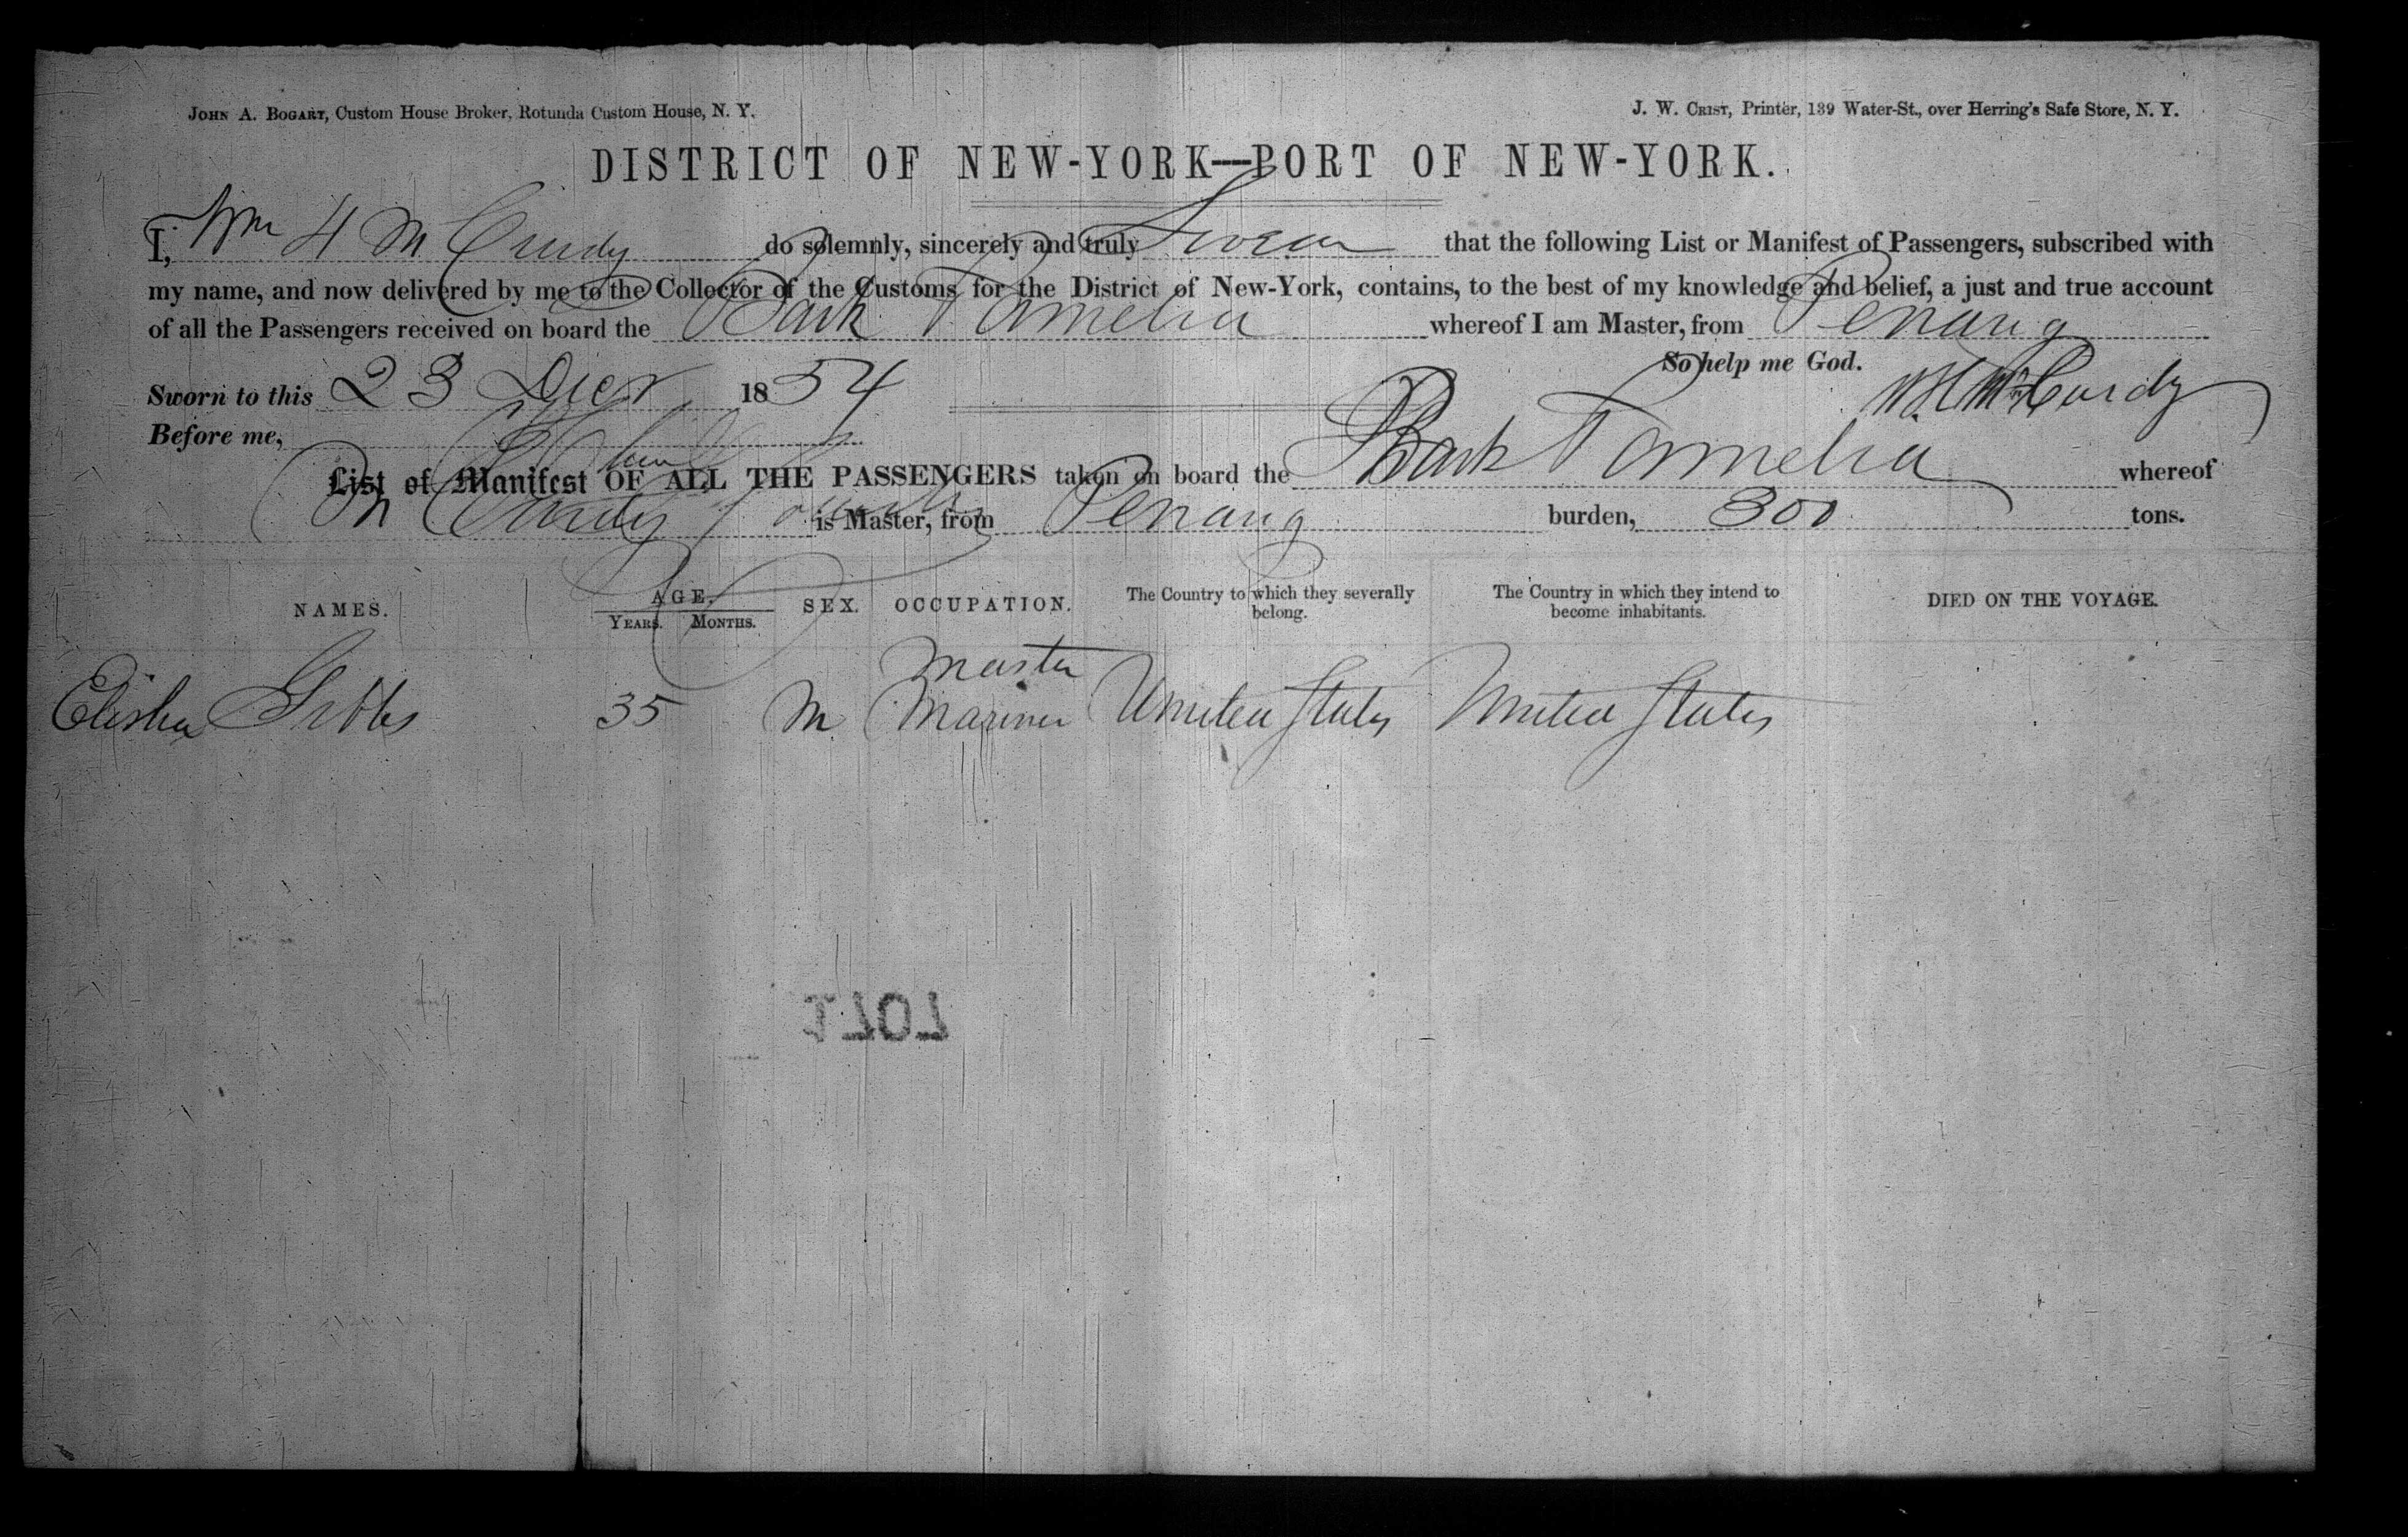 JOHN A. BOGART, Custom House Broker, Rotunda Custom House, N. Y.
J. W. CRIST, Printer, 139 Water-St., over Herring's Safe Store, N. Y.
DISTRICT OF NEW-YORK—PORT OF NEW-YORK.
I, Wm H McCurdy do solemnly, sincerely and truly Swear that the following List or Manifest of Passengers, subscribed with
my name, and now delivered by me to the Collector of the Customs for the District of New-York, contains, to the best of my knowledge and belief, a just and true account
of all the Passengers received on board the Bark Pamelia whereof I am Master, from Penang
So help me God.
Sworn to this 23 Decr 1854
W. H. McCurdy
Before me,
List of Manifest OF ALL THE PASSENGERS taken on board the Bark Pamelia whereof
McCurdy is Master, from Penang burden, 300 tons.
NAMES. AGE. YEARS. MONTHS. SEX. OCCUPATION. The Country to which they severally belong. The Country in which they intend to become inhabitants. DIED ON THE VOYAGE.
Elisha Gibbs 35 M Master Mariner United States United States
1707